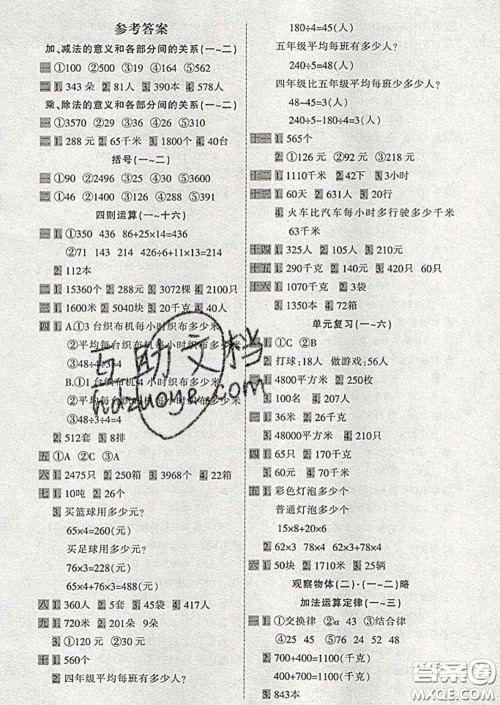 参考答案
加、减法的意义和各部分间的关系(一~二)
一 1. ①100 ②205 ③19 ④164 ⑤562
二 1. 343朵 2. 81人 3. 390本 4. 578人
乘、除法的意义和各部分间的关系(一~二)
一 ①3570 ②29 ③35 ④26 ⑤310
二 1. 288元 2. 65千米 3. 1800个 4. 40台
括号(一~二)
一 ①90 ②2496 ③25 ④30 ⑤21
二 ①46 ②1400 ③6 ④8 ⑤31
四则运算(一~十六)
一 1. ①350 436 86+25×14=436
②71 143 214 426÷6+11×13=214
2. 112本
二 1. 15360个 2. 288只 3. 3072棵 4. 810只
三 1. 1600米 2. 5040块 3. 20千克 4. 40元
四 1. A.①3台织布机每小时织布多少米
②平均每台织布机每小时织布多少米
③48÷4÷3=4
B.①1台织布机4小时织布多少米
②平均每台织布机每小时织布多少米
③48÷3÷4=4
2. 512套 3. 8排
五 ①A ②C ③A
六 1. 2475只 2. 250箱 3. 3968个 4. 22箱
七 1. 10吨 2. 2米
3. 买篮球用多少元?
65×4=260(元)
买足球用多少元?
76×3=228(元)
65×4+76×3=488(元)
八 1. 360人 2. 5套 3. 45人 4. 17人
九 1. 720人 2. 201朵 3. 9朵
十 1. ①54元 ②330元 ③66元
十一 1. 560个
2. 四年级平均每班有多少人?
180÷4=45(人)
五年级平均每班有多少人?
240÷5=48(人)
四年级比五年级平均每班有多少人?
48-45=3(人)
240÷5-180÷4=3(人)
1. 565个
2. ①126元 ②92元 ③218元
1. 1110千米 2. 42下 3. 3小时
1. 60天 2. 631人 3. 20行
4. 火车比汽车每小时多行驶多少千米
63千米
十四 1. 325人 2. 105人 3. 80元
十五 1. 290千克 2. 2张 3. 2袋
十六 1. ①70千克 ②7千克 2. 3袋
3. 1350本 4. 72箱
单元复习(一~六)
一 ①C ②B
2. 打球:18人 做游戏:56人
二 1. 4800平方米 2. 250枚
3. 100个 4. 10个
三 1. 282米 2. 26千克
3. 48000平方米 4. 28只
四 1. 65只 2. 150千克
3. 60元 4. 70千米
五 1. 彩色灯泡多少个
普通灯泡多少个
15×8+20
2. 78÷3×2 78÷3+78
六 1. 50块 2. 1710米 3. 25辆
观察物体(二)·(一~二)略
加法运算定律(一~三)
一 1. ①交换律 ②a 43 ③结合律
④25 45 ⑤67 33 52 48
2. 700+400=1100(千克)
400+700=1100(千克)
3. 843本
互助文档
huzuoye.com
答案圈
MXQE.COM